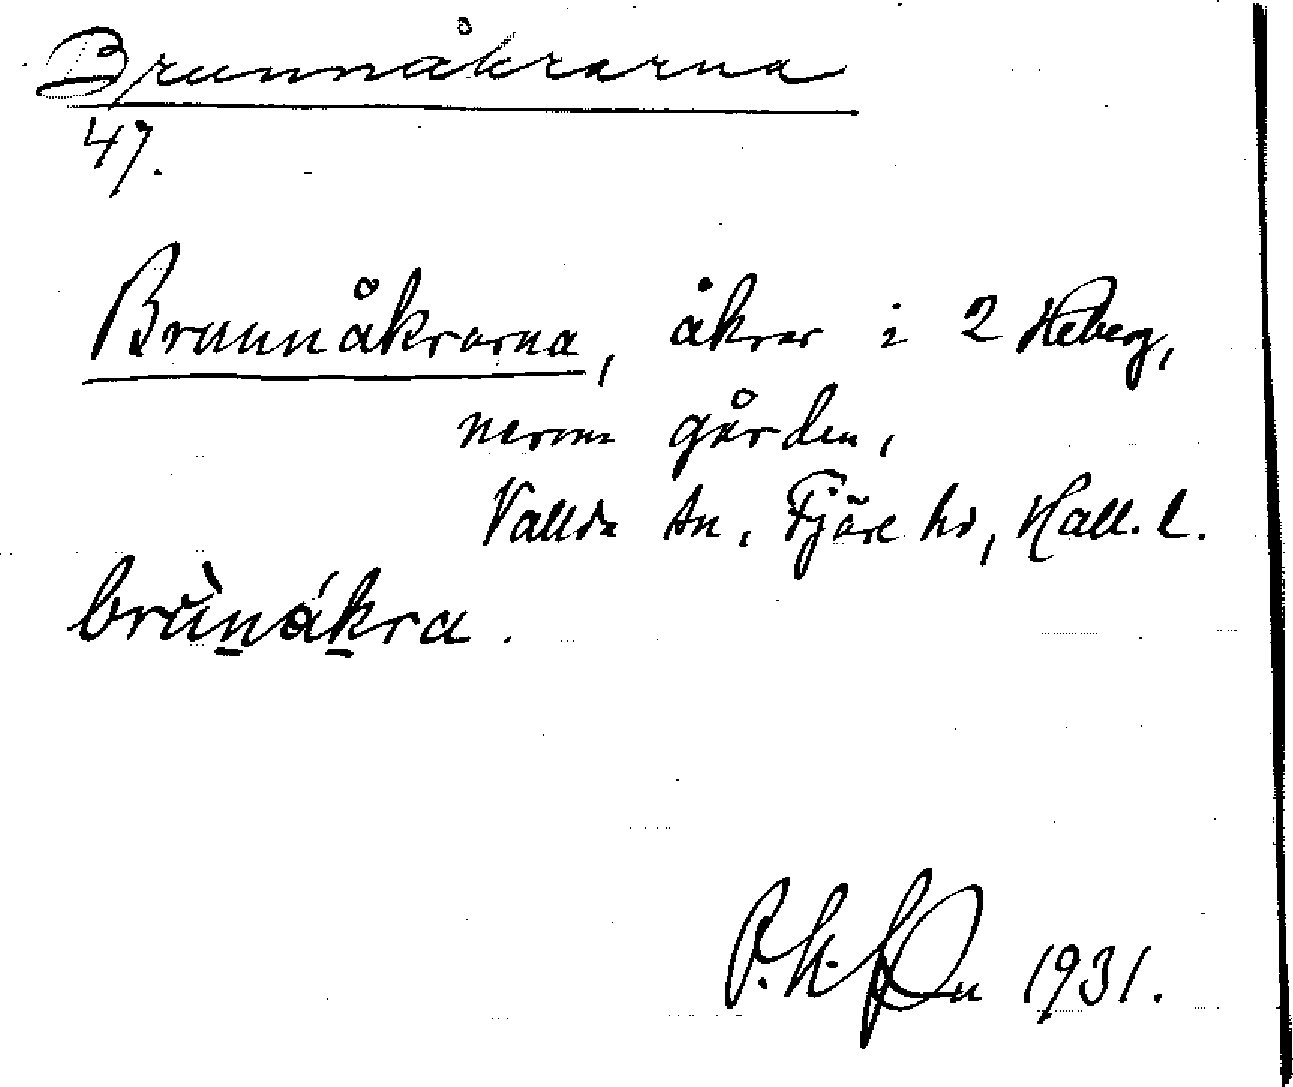 Brunnåkrarna
47.
Brunnåkrarna, åkrar i 2 Heberg,
norom gården,
Vallda sn, Fjäre hd, Hall. l.
brùnákra.
1931.